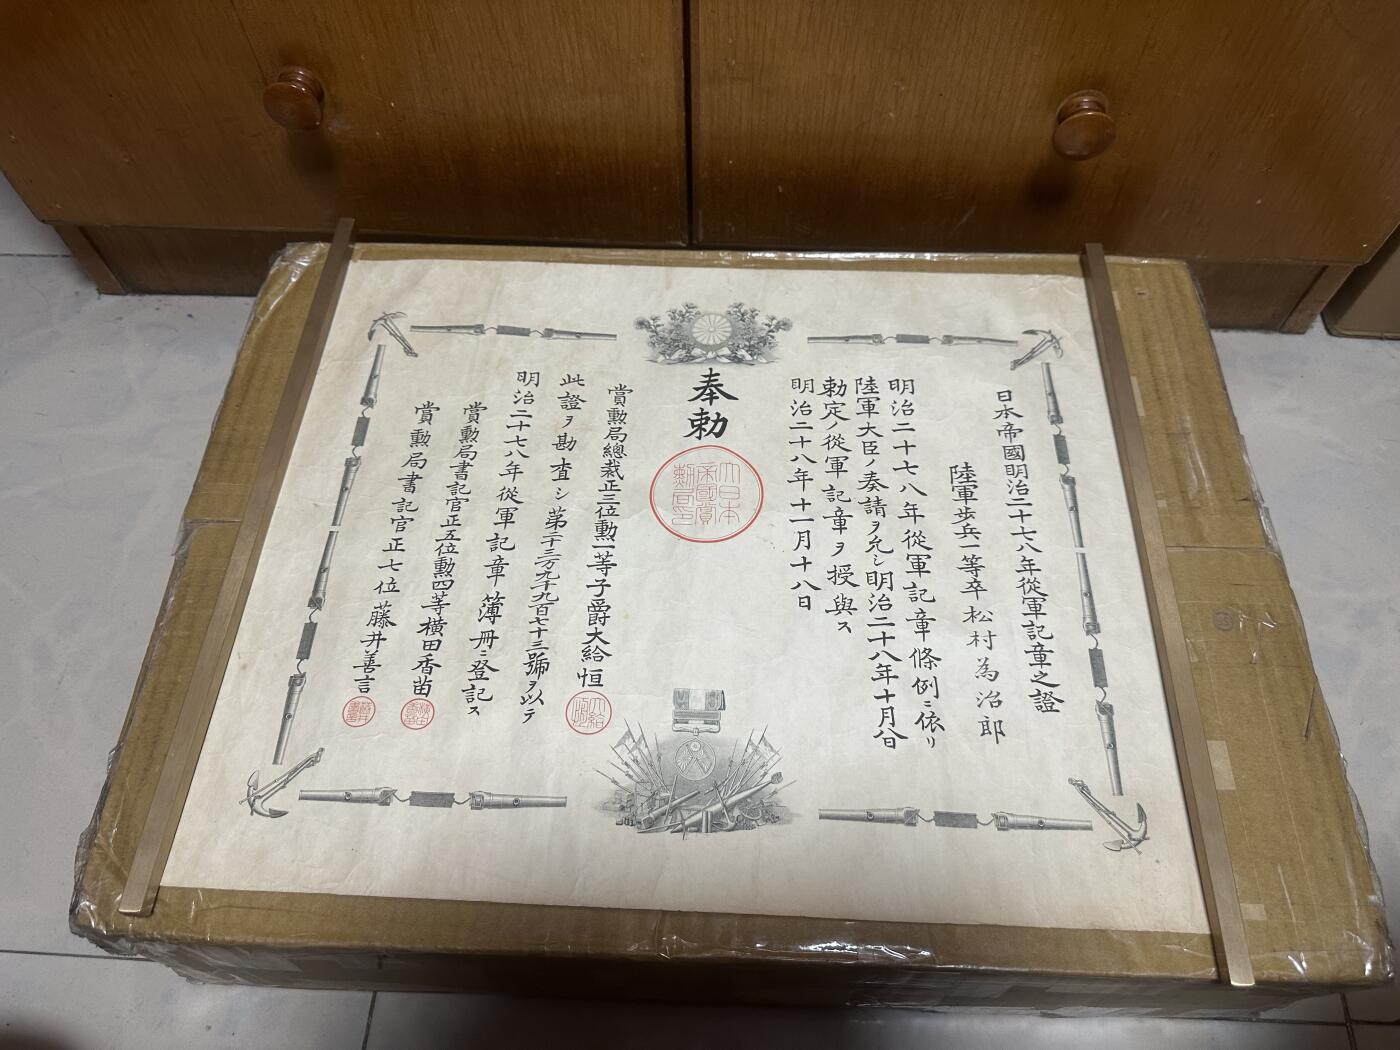 日本帝國明治二十七八年從軍記章之證
陸軍歩兵一等卒松村為治郎
明治二十七八年從軍記章條例ニ依リ
陸軍大臣ノ奏請ヲ允シ明治二十八年十月八日
勅定ノ從軍記章ヲ授與ス
明治二十八年十一月十八日
奉勅
大日本帝國賞勲局印
賞勲局總裁正三位勲一等子爵大給恒
此證ヲ勘査シ第二十三万九千九百七十三號ヲ以テ
明治二十七八年從軍記章簿冊ニ登記ス
賞勲局書記官正五位勲四等横田香苗
賞勲局書記官正七位藤井善言